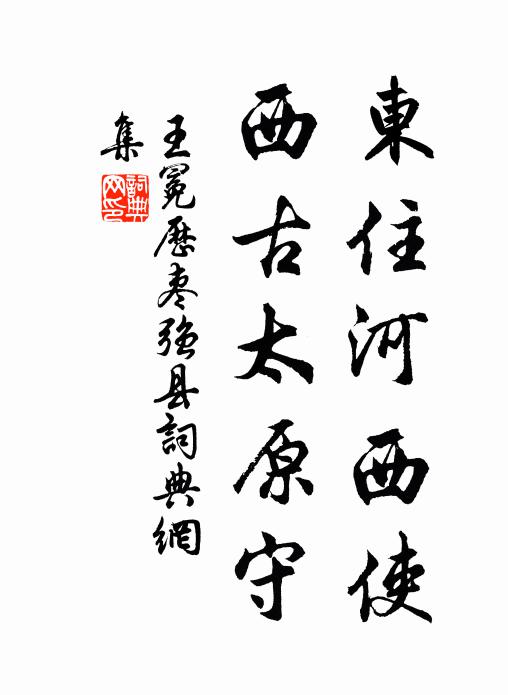 東住河西使
西古太原守
王冕歷枣強县詞典網
集
詞典
网印